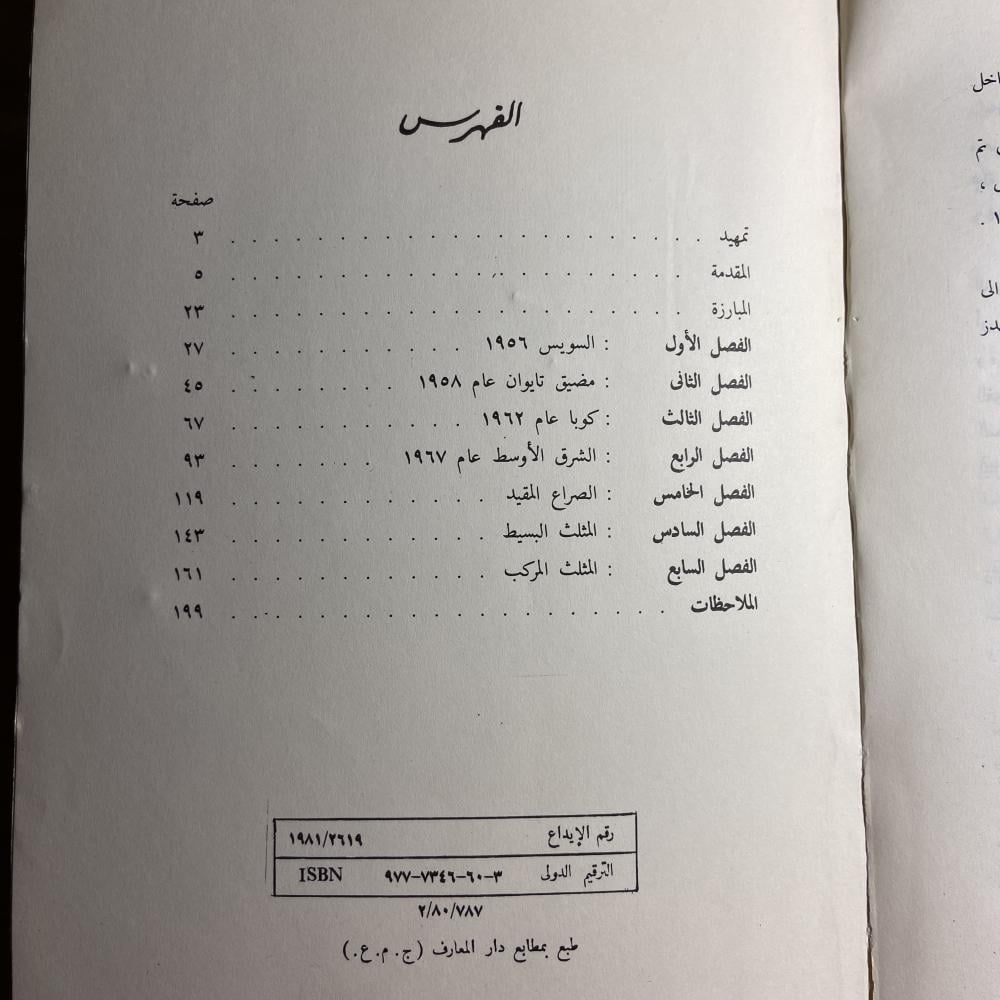 الفهرس
صفحة
تمهيد . . . . . . . . . . . . . . . . . . ٣
المقدمة . . . . . . . . . . . . . . . . . . ٥
المبارزة . . . . . . . . . . . . . . . . . . ٢٣
الفصل الأول : السويس ١٩٥٦ . . . . . . . . . ٢٧
الفصل الثانى : مضيق تايوان عام ١٩٥٨ . . . . . . . ٤٥
الفصل الثالث : كوبا عام ١٩٦٢ . . . . . . . . . ٦٧
الفصل الرابع : الشرق الأوسط عام ١٩٦٧ . . . . . . ٩٣
الفصل الخامس : الصراع المقيد . . . . . . . . . . ١١٩
الفصل السادس : المثلث البسيط . . . . . . . . . . ١٤٣
الفصل السابع : المثلث المركب . . . . . . . . . . ١٦١
الملاحظات . . . . . . . . . . . . . . . . . ١٩٩
رقم الإيداع ١٩٨١/٢٦١٩
الترقيم الدولى ٩٧٧-٧٣٤٦-٦٠-٣ ISBN
٢/٨٠/٧٨٧
طبع بمطابع دار المعارف (ج.م.ع.)
تم
الى